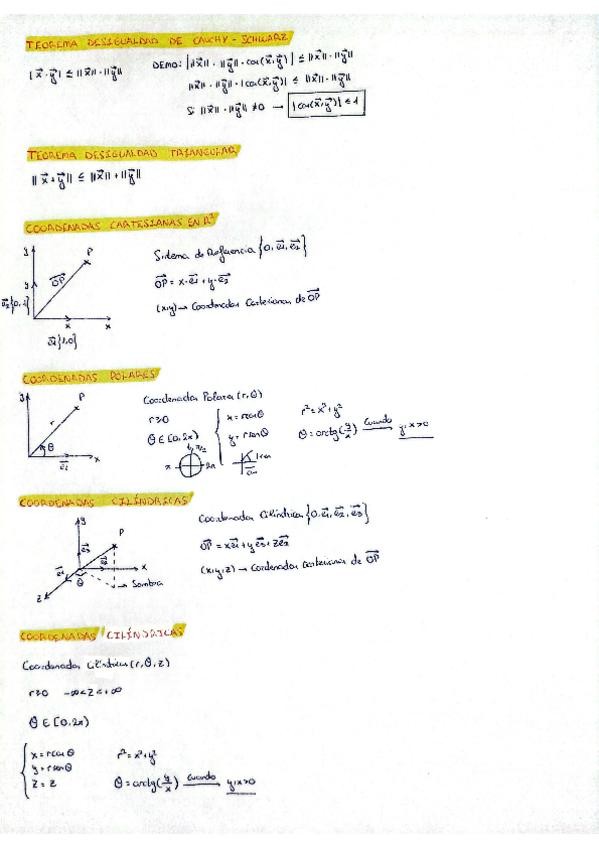 TEOREMA DESIGUALDAD DE CAUCHY-SCHWARZ
|x⃗·y⃗| ≤ ||x⃗||·||y⃗||
DEMO: | ||x⃗||·||y⃗||·cos(x⃗,y⃗) | ≤ ||x⃗||·||y⃗||
||x⃗||·||y⃗||·|cos(x⃗,y⃗)| ≤ ||x⃗||·||y⃗||
Si ||x⃗||·||y⃗|| ≠ 0 → |cos(x⃗,y⃗)| ≤ 1
TEOREMA DESIGUALDAD TRIANGULAR
||x⃗+y⃗|| ≤ ||x⃗||+||y⃗||
COORDENADAS CARTESIANAS EN R²
y
P
OP⃗
y
x
x
Sistema de Referencia {0, e₁⃗, e₂⃗}
OP⃗ = x·e₁⃗ + y·e₂⃗
(x,y) → Coordenadas Cartesianas de OP⃗
COORDENADAS POLARES
y
P
r
θ
e₁⃗
x
Coordenadas Polares (r,θ)
r≥0
θ ∈ [0,2π)
x = rcosθ
y = rsenθ
π/2
π
2π
r² = x²+y²
θ = arctg(y/x) cuando → y,x>0
COORDENADAS CILÍNDRICAS
y
P
e₃⃗
e₂⃗
x
e₁⃗
θ
z
→ Sombra
Coordenadas Cilíndricas {0, e₁⃗, e₂⃗, e₃⃗}
OP⃗ = xe₁⃗ + ye₃⃗ + ze₂⃗
(x,y,z) → Coordenadas Cartesianas de OP⃗
COORDENADAS CILÍNDRICAS
Coordenadas Cilíndricas (r,θ,z)
r≥0 -∞<z<+∞
θ ∈ [0,2π)
x = rcosθ
y = rsenθ
z = z
r² = x²+y²
θ = arctg(y/x) cuando → y,x>0